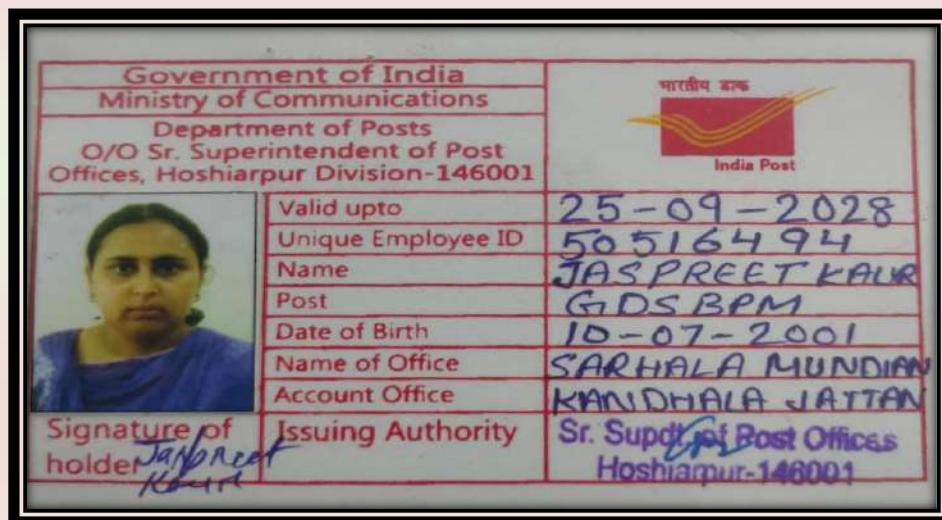 Government of India
Ministry of Communications
Department of Posts
O/O Sr. Superintendent of Post
Offices, Hoshiarpur Division-146001
भारतीय डाक
India Post
Valid upto 25-09-2028
Unique Employee ID 50516494
Name JASPREET KAUR
Post GDS BPM
Date of Birth 10-07-2001
Name of Office SARHALA MUNDIAN
Account Office KANDHALA JATTAN
Signature of
holder Jaspreet
Kaur
Issuing Authority
Sr. Supdt. of Post Offices
Hoshiarpur-146001